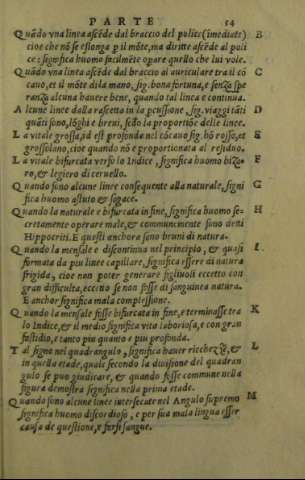 PARTE 54
Quãdo vna linea ascẽde dal braccio del polics (imediatè) B
cioe che nõ se eslonga p il mõte, ma diritte ascẽde al poli
ce: significa huomo facilmẽte opare quello che lui vole.
Quãdo vna linea ascẽde dal braccio al auriculare tra il cõ C
cauo, et il mõte dila mano, sig. bona fortuna, e senza spe
ranza alcuna hauere bene, quando tal linea e continua.
Alcune linee dalla rascetta in la pcussione, sig. viaggi tãti D
quãti sono, lõghi e breui, sẽdo lo proportiõe delle linee.
La vitale grossa, id est profonda nel cõcauo sig. hõ rosso, et E
grossolano, cioe quando nõ e proportionata al residuo.
La vitale bifurcata verso lo Indice, significa huomo bizo- F
ro, & legiero di ceruello.
Quando sono alcune linee consequente alla naturale, signi G
fica huomo astuto & sagace.
Quando la naturale e bifurcata in fine, significa huomo se- H
cretamente operare male, & communemente sono detti
Hippocriti. E questi anchora sono bruni di natura.
Quando la mensale e discontinua nel principio, & quasi I
formata da piu linee capillare, significa essere di natura
frigida, cioe non poter generare figliuoli eccetto con
gran difficulta, eccetto se non fosse di sanguinea natura.
E anchor significa mala complessione.
Quando la mensale fosse bifurcata in fine, e terminasse tra K
lo Indice, & il medio significa vita laboriosa, e con gran
fastidio, e tanto piu quanto e piu profonda.
Tal signo nel quadrangulo, significa hauer ricchezza, & L
in quella etade, quale secondo la diuisione del quadran
gulo se puo giudicare, & quando fosse commune nella
figura demostra significa nella prima etade.
Quando sono alcune linee intersecate nel Angulo supremo M
significa huomo discordioso, e per sua mala lingua esser
causa de questione, e farsi sangue.